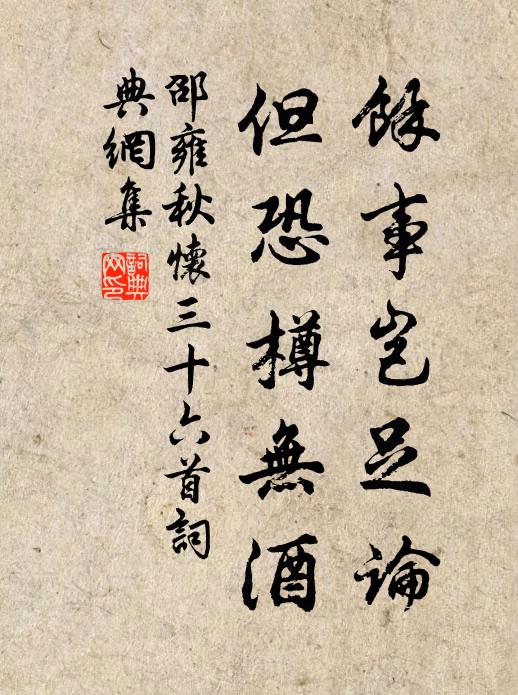 餘事岂足論
但恐樽無酒
邵雍秋懷三十六首詞
典網集
詞典
网印